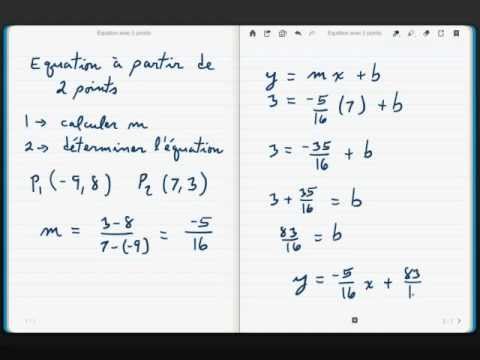 Equation avec 2 points
Equation à partir de
2 points
1 → calculer m
2 → déterminer l'équation
P₁ (-9, 8) P₂ (7, 3)
m = 3-8 / 7-(-9) = -5/16
1/1
Equation avec 2 points
y = mx + b
3 = -5/16 (7) + b
3 = -35/16 + b
3 + 35/16 = b
83/16 = b
y = -5/16 x + 83/1